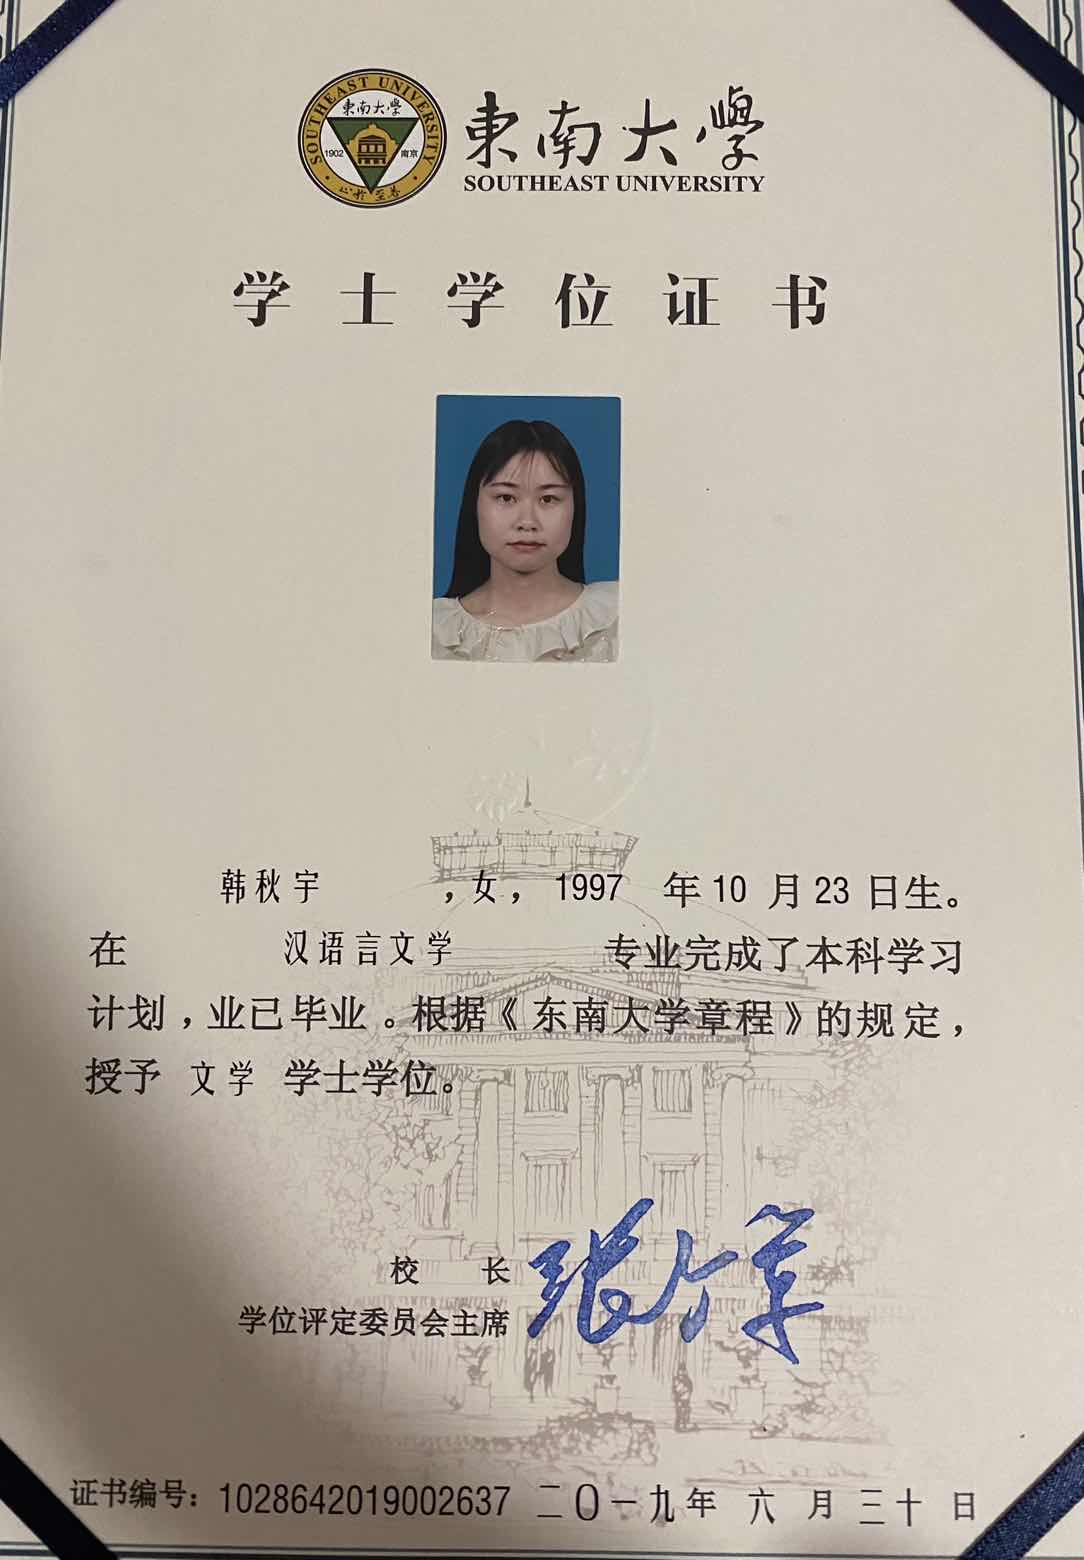 SOUTHEAST UNIVERSITY
東南大學
1902 南京
東南大學
SOUTHEAST UNIVERSITY
学士学位证书
韩秋宇 ，女， 1997 年 10 月 23 日生。
在 汉语言文学 专业完成了本科学习
计划，业已毕业。根据《东南大学章程》的规定，
授予 文学 学士学位。
校 长
学位评定委员会主席
证书编号：1028642019002637 二〇一九年 六 月 三十 日